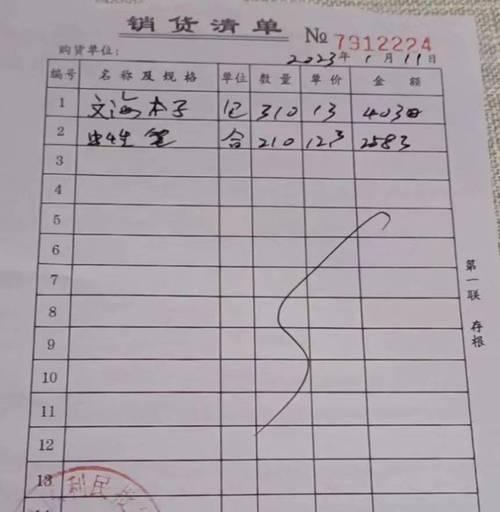 销货清单 № 7912224
购货单位： 2023年1月11日
编号 名称及规格 单位 数量 单价 金额
1 文海本子 310 13 4030
2 笔 合 210 123 2583
3
4
5
6
7
8
9
10
11
12
13
第一联 存根
利民